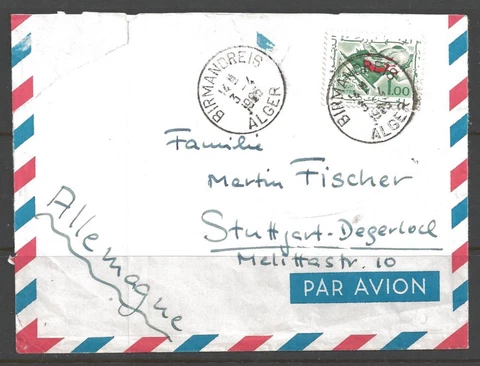 BIRMANDREIS
14 H
3 - 4
ALGER
1.00
BIRMANDREIS
ALGER
Familie
Martin Fischer
Stuttgart-Degerloch
Melittastr. 10
Allemagne
PAR AVION